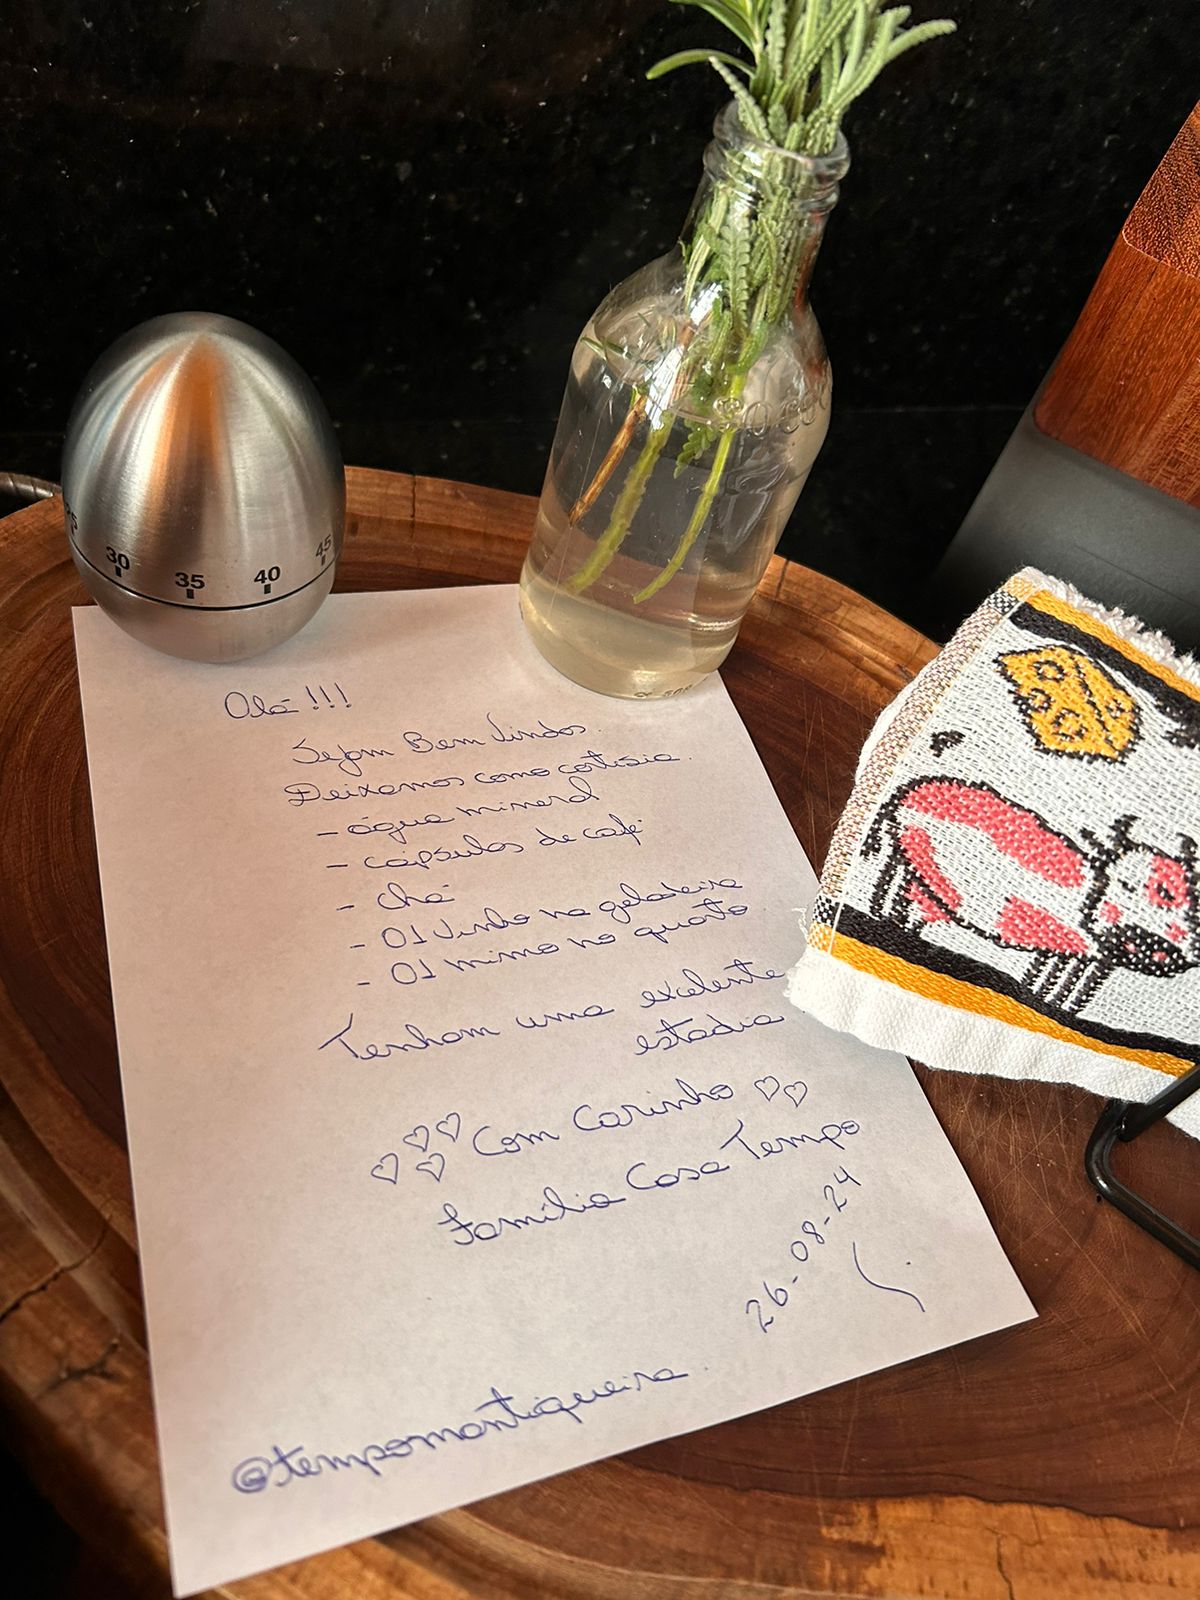 25 30 35 40 45
Olá!!!
Sejam Bem Vindos.
Deixamos como cortisia.
- água mineral
- cápsulas de café
- chá
- 01 Vinho na geladeira
- 01 mimo no quarto
Tenham uma excelente
estadia
Com Carinho
Família Casa Tempo
26-08-24
@tempomantiqueira.